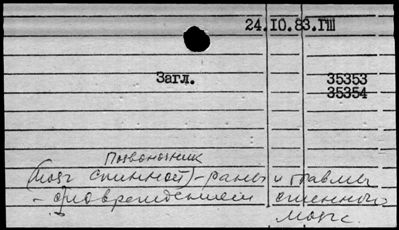 24.10.83.ГШ
Загл. 35353
35354
Позвоночник
(мозг спинной) - раны и травмы
- с повреждением спинного
мозга.